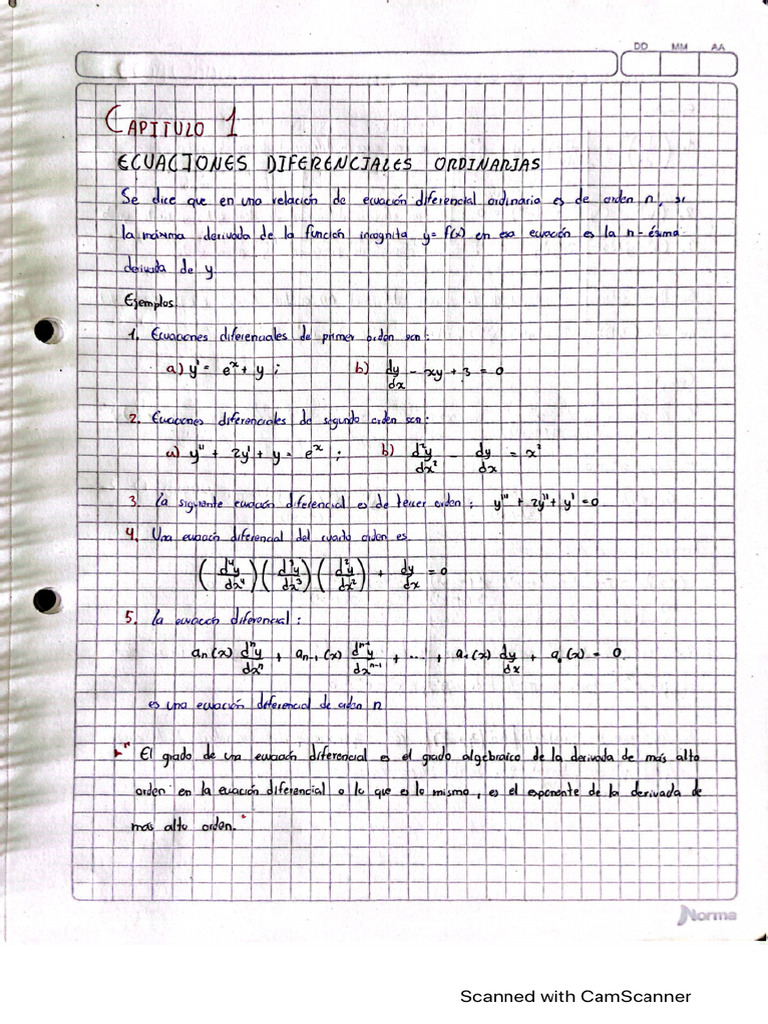 DD MM AA
CAPITULO 1
ECUACIONES DIFERENCIALES ORDINARIAS
Se dice que en una relación de ecuación diferencial ordinaria es de orden n, si
la máxima derivada de la función incognita y= f(x) en esa ecuación es la n-ésima
derivada de y
Ejemplos:
1. Ecuaciones diferenciales de primer orden son:
a) y' = e^x + y ; b) dy/dx - xy + 3 = 0
2. Ecuaciones diferenciales de segundo orden son:
a) y'' + 2y' + y = e^x ; b) d²y/dx² - dy/dx = x²
3. La siguiente ecuación diferencial es de tercer orden ; y''' + 2y'' + y' = 0
4. Una ecuación diferencial del cuarto orden es
(d⁴y/dx⁴)(d³y/dx³)(d²y/dx²) + dy/dx = 0
5. La ecuación diferencial:
an(x) dⁿy/dxⁿ + an-1(x) dⁿ⁻¹y/dxⁿ⁻¹ + ... + a₁(x) dy/dx + a₀(x) = 0
es una ecuación diferencial de orden n
" El grado de una ecuación diferencial es el grado algebraico de la derivada de más alto
orden en la ecuación diferencial o lo que es lo mismo, es el exponente de la derivada de
más alto orden. "
Norma
Scanned with CamScanner